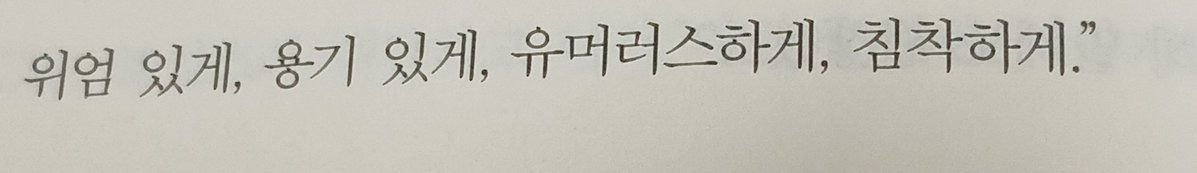 위엄 있게, 용기 있게, 유머러스하게, 침착하게.”